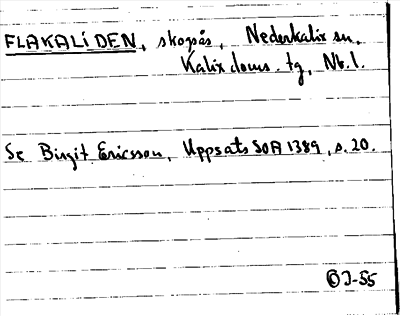 FLAKALIDEN, skogsås, Nederkalix sn,
Kalix doms. tg, Nb.l.
Se Birgit Ericsson, Uppsats SOA 1389, s. 20.
OJ-55